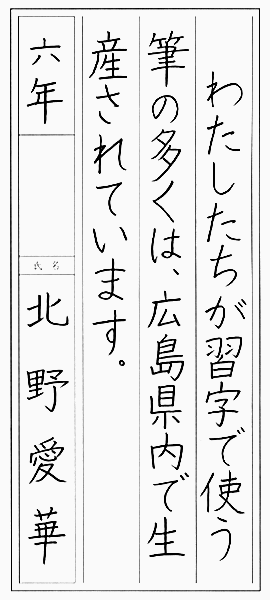 わたしたちが習字で使う
筆の多くは、広島県内で生
産されています。
六年
氏名
北野愛華